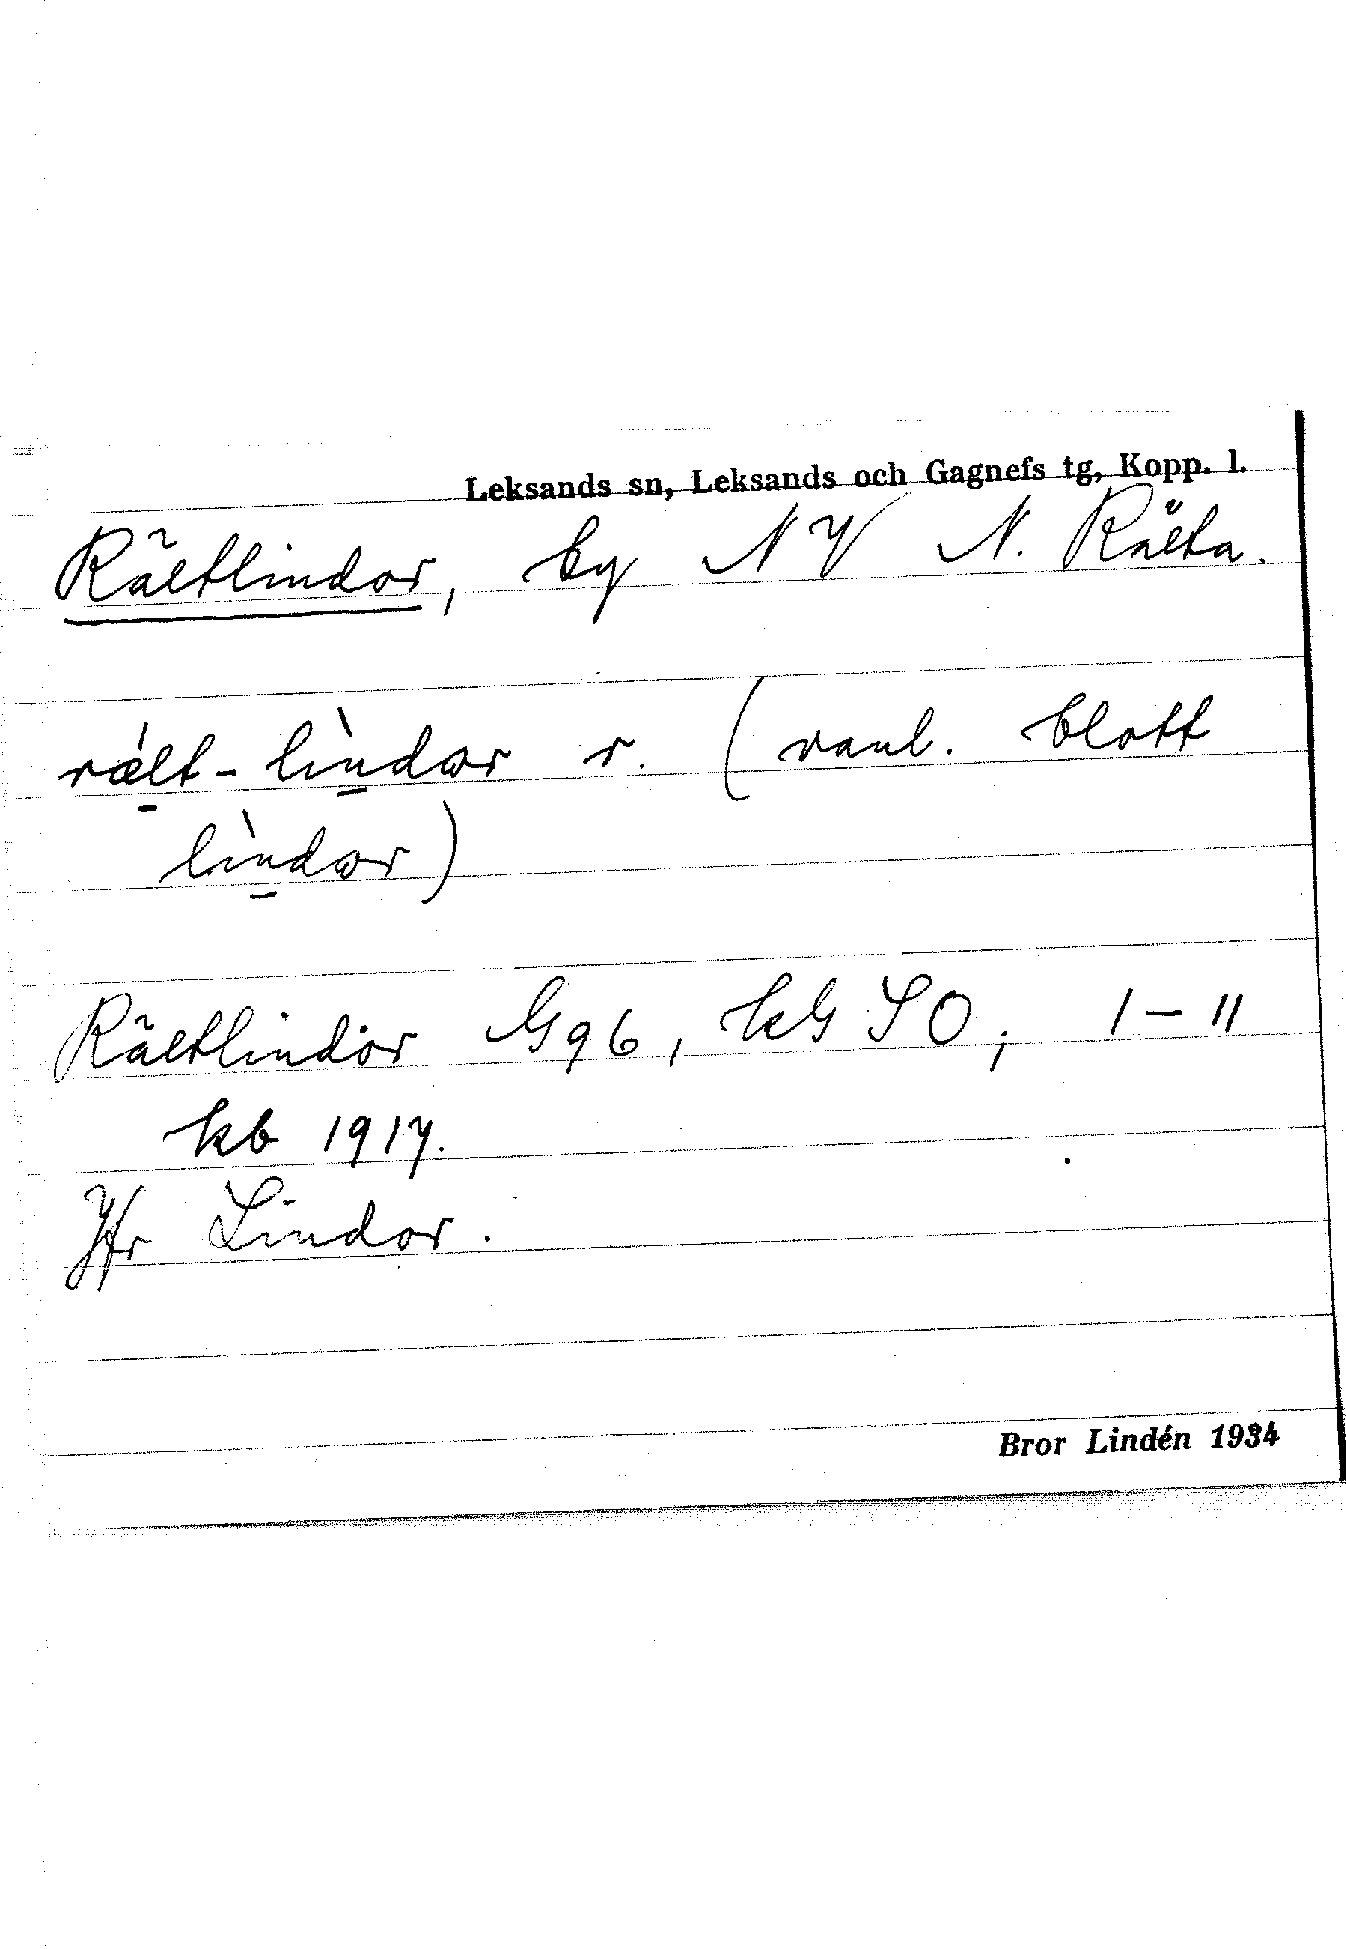 Leksands sn, Leksands och Gagnefs tg, Kopp. l.
Rältlindor, by NV N. Rälta.
rælt-lindor r. (vanl. blott
lindor)
Rältlindor G96, kG SO; 1-11
kb 1917.
Jfr Lindor.
Bror Lindén 1934